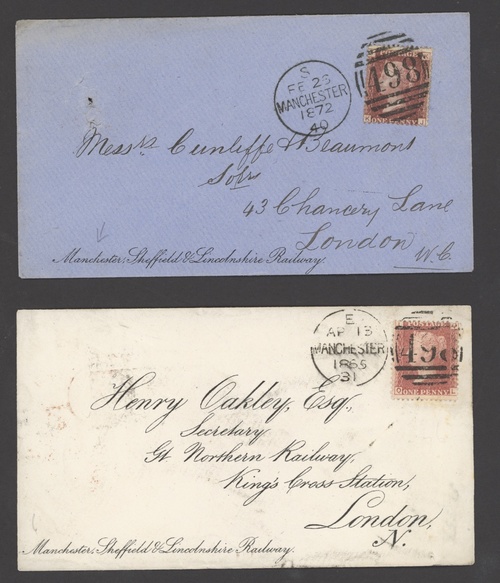 S
FE 23
MANCHESTER
1872
40
498
ONE PENNY
Messrs Cunliffe & Beaumont
Solrs
43 Chancery Lane
London
W.C.
Manchester, Sheffield & Lincolnshire Railway.
E
AP 13
MANCHESTER
1865
31
498
ONE PENNY
Henry Oakley, Esq.,
Secretary
Gt Northern Railway,
King's Cross Station,
London,
N.
Manchester, Sheffield & Lincolnshire Railway.